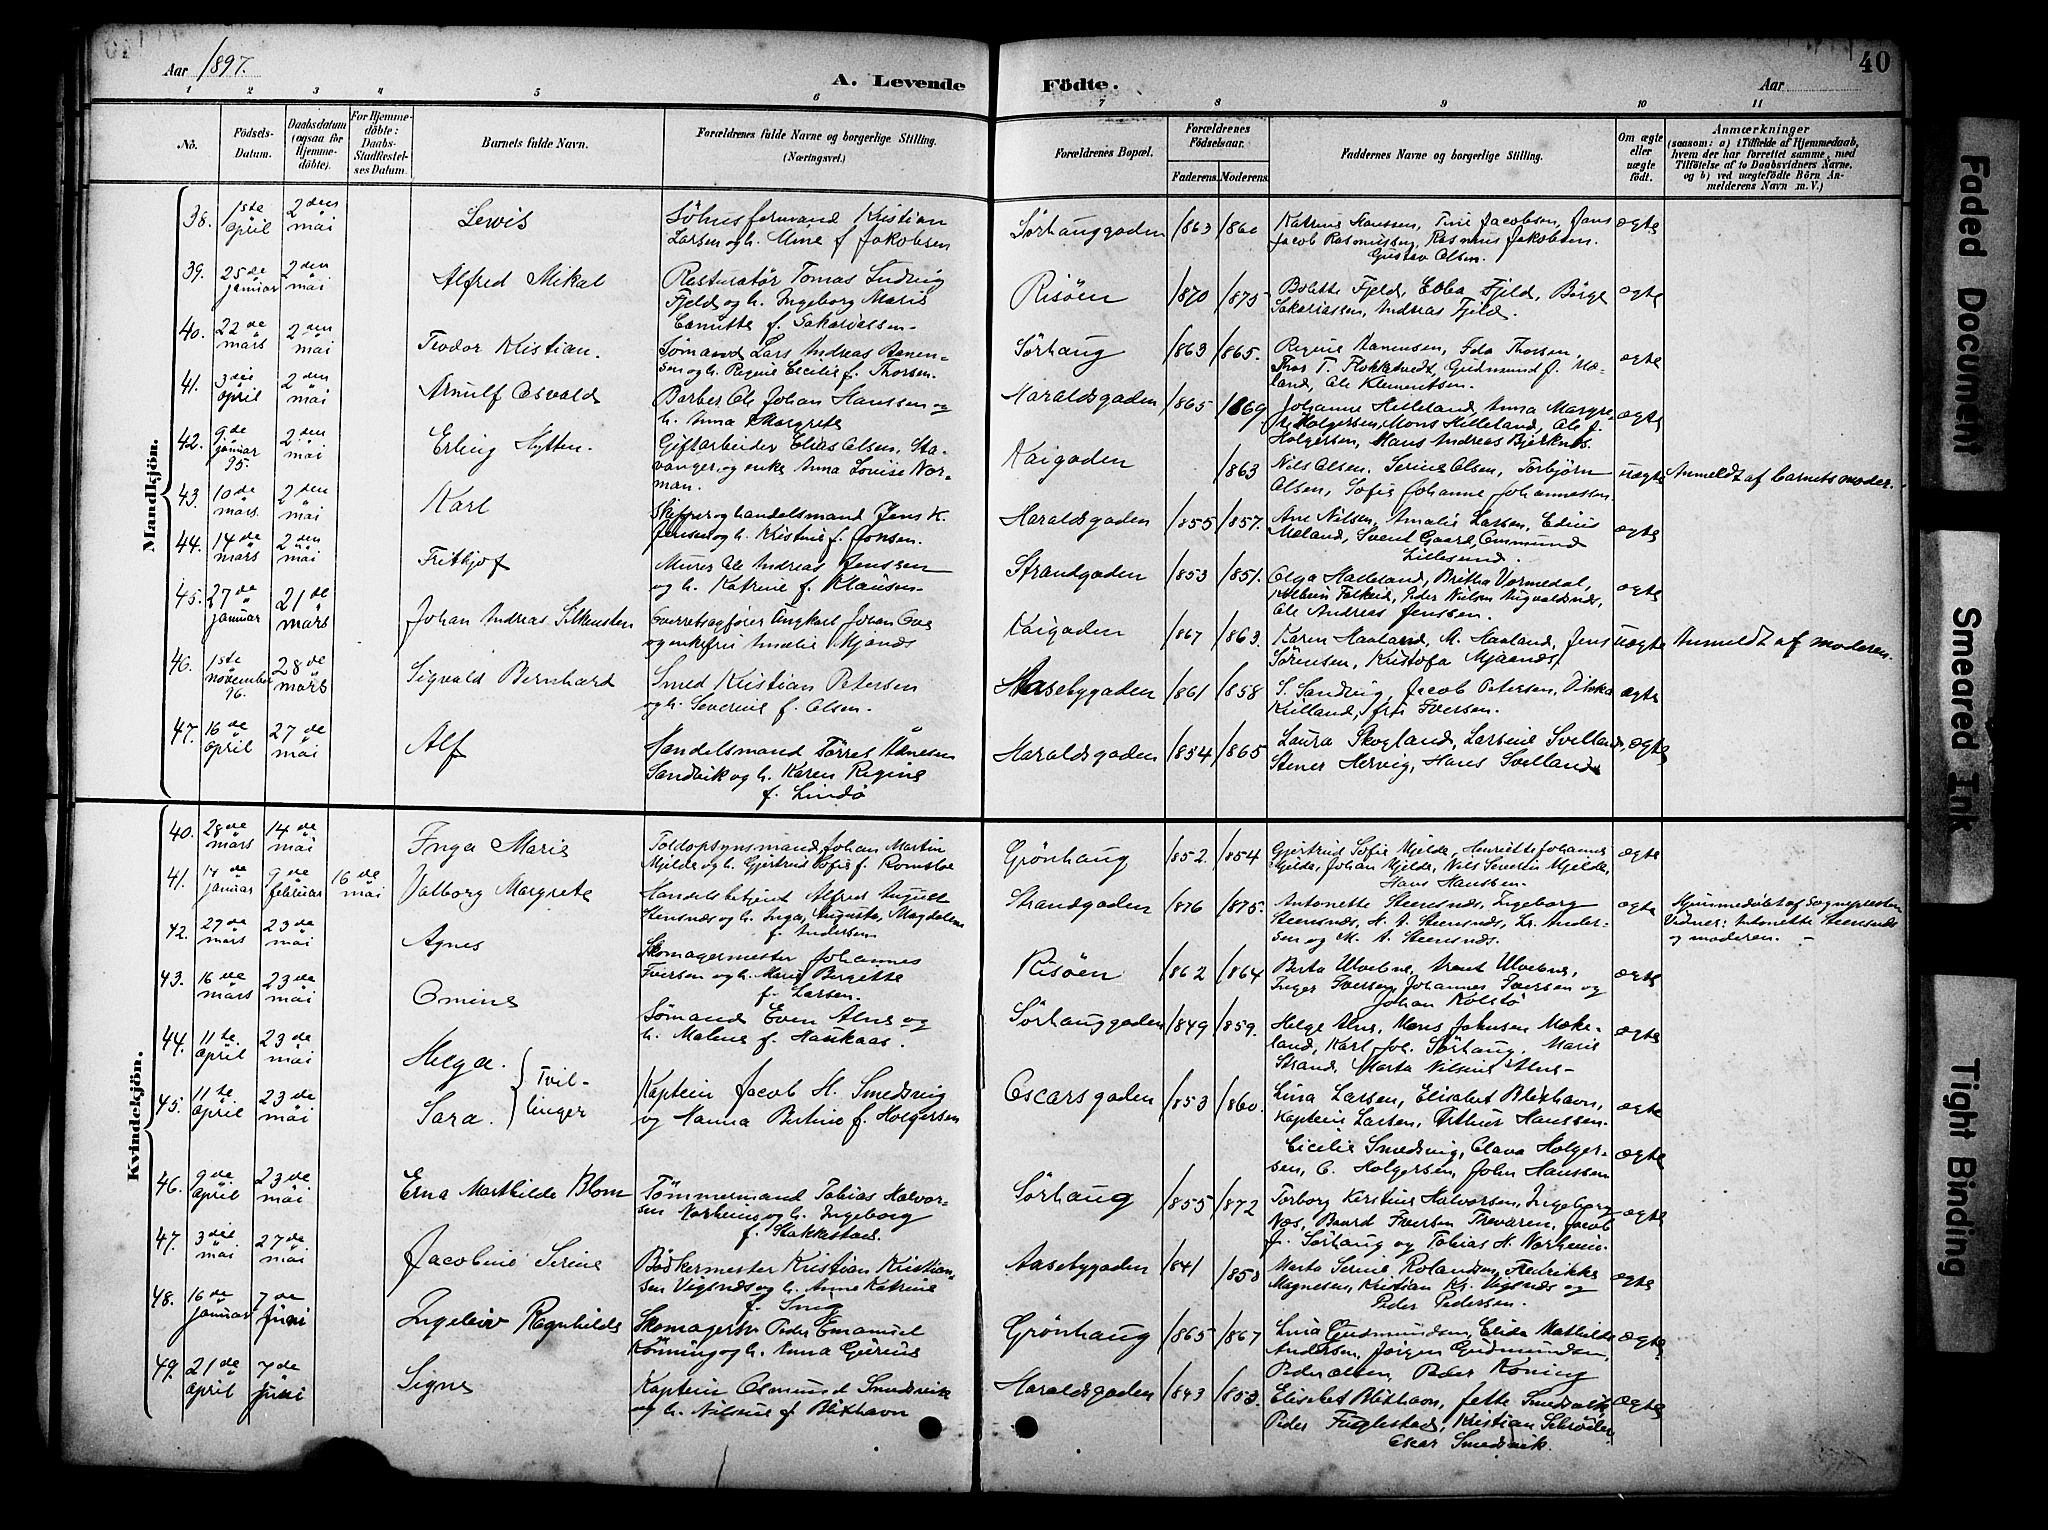 Aar 1897.
A. Levende Födte.
Aar
40
1 2 3 4 5 6 7 8 9 10 11
No. Födsels-Datum. Daabsdatum (ogsaa for Hjemmedöbte). For Hjemmedöbte: Daabs-Stadfestelses Datum. Barnets fulde Navn. Forældrenes fulde Navne og borgerlige Stilling. (Næringsvei.) Forældrenes Bopæl. Forældrenes Födselsaar. Faderens. Moderens. Faddernes Navne og borgerlige Stilling. Om ægte eller uægte födt. Anmærkninger (saasom: a) i Tilfælde af Hjemmedaab, hvem der har forrettet samme, med Tilföielse af to Daabsvidners Navne, og b) ved uægtefödte Börn Anmelderens Navn m. V.)
Mandkjön.
38. 1ste april 2den mai Lewis Larsen og h. Mine f. Jakobsen Sörhauggaden 1863 1860 Katrine Hanssen, Tine Jacobsen, Jens Jacob Rasmussen, Rasmus Jakobsen. Gustav Olsen. ægte
39. 25de januar 2den mai Alfred Mikal Resturatör Tomas Ludvig Fjeld og h. Ingeborg Marie f. Sakariassen Risöen 1870 1875 Bolette Fjeld, Ebba Fjeld, Börge Sakariassen, Andreas Fjeld. ægte
40. 22de mars 2den mai Teodor Kristian. Sömand Lars Andreas Aanensen og h. Regine Cecilie f. Thorsen. Sörhaug 1863 1865. Regine Aanensen, Ida Thorsen, Thor T. Gudmund J. Mæland, Ole Klementsen. ægte
41. 3die april 2den mai Arnulf Osvald Barber Ole Johan Hanssen og h. Anna Margrete Haraldsgaden 1865 1869 Johanne Helleland, Anna Margrete Holgersen, Mons Helleland, Ole J. Holgersen, Hans Andreas Bjerknes. ægte
42. 9de januar 95. 2den mai Erling Hytten. Elias Olsen, Stavanger, og enke Anna Lovise Norman. Kaigaden 1863 Nils Olsen, Serine Olsen, Torbjörn Olsen, Sofie Johanne Johannessen. uægte Anmeldt af barnets moder.
43. 10de mars. 2den mai Karl Skipper og handelsmand Jens K. Jensen og h. Kristine f. Jonsen. Haraldsgaden 1855 1857. Ane Nilsen, Amalie Larsen, Edvin Mæland, Svent Gaard, Ommund Lillesund. ægte
44. 14de mars 2den mai Fritkjof Murer Ole Andreas Jenssen og h. Katrine f. Klausen. Strandgaden 1853 1851. Olga Halleland, Britha Vormedal, Peder Nielsen Augvaldsnes, Ole Andreas Jenssen. ægte
45. 27de januar 21de mars Johan Andreas Silkensten Overretssagförer Johan Ove og enkefru Amalie Mjanæs Kaigaden 1867 1863. Karen Haaland, A. Haaland, Jens Sörensen, Kristofa Mjaanes. uægte Anmeldt af moderen.
46. 1ste november 96. 28de mars Sigvald Bernhard Smed Kristian Petersen og h. Severine f. Olsen. Aasebygaden 1861 1858 S. Sandvig, Jacob Petersen, Kielland, fru Iversen. ægte
47. 16de april 27de mai Alf Handelsmand Törres Hansen Sandvik og h. Karen Regine f. Lindö Haraldsgaden 1854 1865 Laura Skogland, Larsine Svelland, Stener Hervig, Hans Svelland ægte
Kvindekjön.
40. 28de mars 14de mai Inga Marie Toldopsynsmand Johan Martin Mjelde og h. Gjertrud Sofie f. Romslo Grönhaug 1852. 1854 Gjertrud Sofie Mjelde, Henriette Johannes Mjelde, Johan Mjelde, Nils Severin Mjelde, Hans Hanssen. ægte
41. 14de januar 9de februar 16de mai Valborg Margrete Handelsbetjent Alfred August Steensnæs og h. Inga Augusta Magdalene f. Andersen Strandgaden 1876 1875. Antonette Steensnæs, Ingeborg Steensnæs, H. A. Steensnæs, Kr. Andersen og M. A. Steensnæs. ægte Hjemmedöbt af sogneprästen Vidner: Antonette Steensnæs og moderen.
42. 27de mars 23de mai Agnes Skomagermester Johannes Iversen og h. Marie Birgitte f. Larsen. Risöen 1862 1864 Berta Ulvebne, Ulvebne, Inger Iversen, Johannes Iversen og Johan Kolstö ægte
43. 16de mars 23de mai Omine Sömand Even Alne og h. Malene f. Haukaas. Sörhauggaden 1849 1859. Helge Alne, Mons Johnsen Mækeland, Karl Joh. Sörhaug, Marie Strand, Marta Nilsine Alne. ægte
44. 11te april 23de mai Helga. Tvillinger
45. 11te april 23de mai Sara. Kaptein Jacob H. Smedsvig og Hanna Bertine f. Holgersen Oscarsgaden 1853 1860. Lina Larsen, Elisabet Blikhavn, Kaptein Larsen, Arthur Hanssen. ægte
Cicilie Smedsvig, Clara Holgersen, C. Holgersen, John Hanssen ægte
46. 9de april 23de mai Erna Marthilde Blom Tömmermand Tobias Halvorsen Norheim og h. Ingeborg f. Stakkestad. Sörhaug 1855 1872 Torborg Kirstine Halvorsen, Ingeborg Næs, Baard Iversen Trevaren, Jacob J. Sörhaug og Tobias H. Norheim. ægte
47. 3die mai 27de mai Jacobine Serine Bödkermester Kristian Kristiansen Vigsnæs og h. Anne Katrine Aasebygaden 1841 1850 Marta Serine Rolandsen, Fredrikke Magnesen, Kristian Kr. Vigsnæs og Peder Pedersen. ægte
48. 16de januar 7de juni Ingeleiv Ragnhilds Skomagersv. Peder Emanuel Könning og h. Anna Gurine Grönhaug 1865 1867 Lina Gudmundsen, Elida Mathilde Andersen, Jörgen Gudmundsen, Peder Olsen, Peder Köning ægte
49. 21de april 7de juni Signe Kaptein Osmund Smedsvik og h. Nilsine f. Blikhavn Haraldsgaden 1843 1853. Elisabet Blikhavn, Jette Smedsvik, Peder Fuglestad, Kristian Schröder, Oscar Smedsvik. ægte
Faded Document
Smeared Ink
Tight Binding